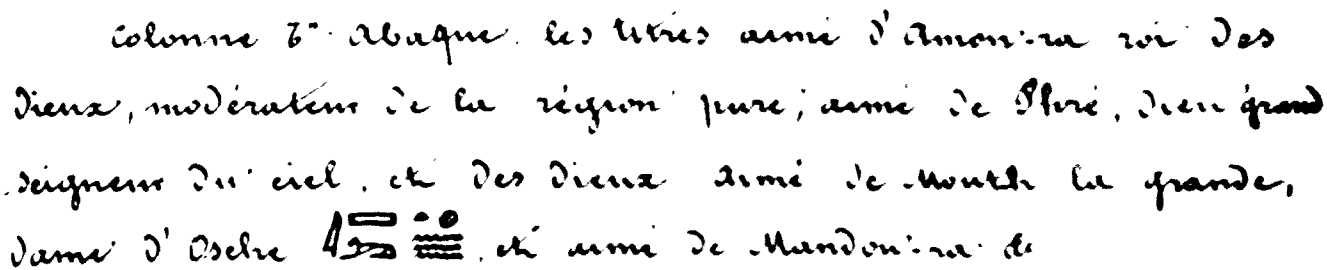 Colonne 7e. Abaque. les titres aimé d'Amon-ra roi des
Dieux, modérateur de la région pure; aimé de Phré, dieu grand
seigneur du ciel, et des Dieux aimé de Mouth la grande,
dame d'Oschr et aimé de Mandou-ra de